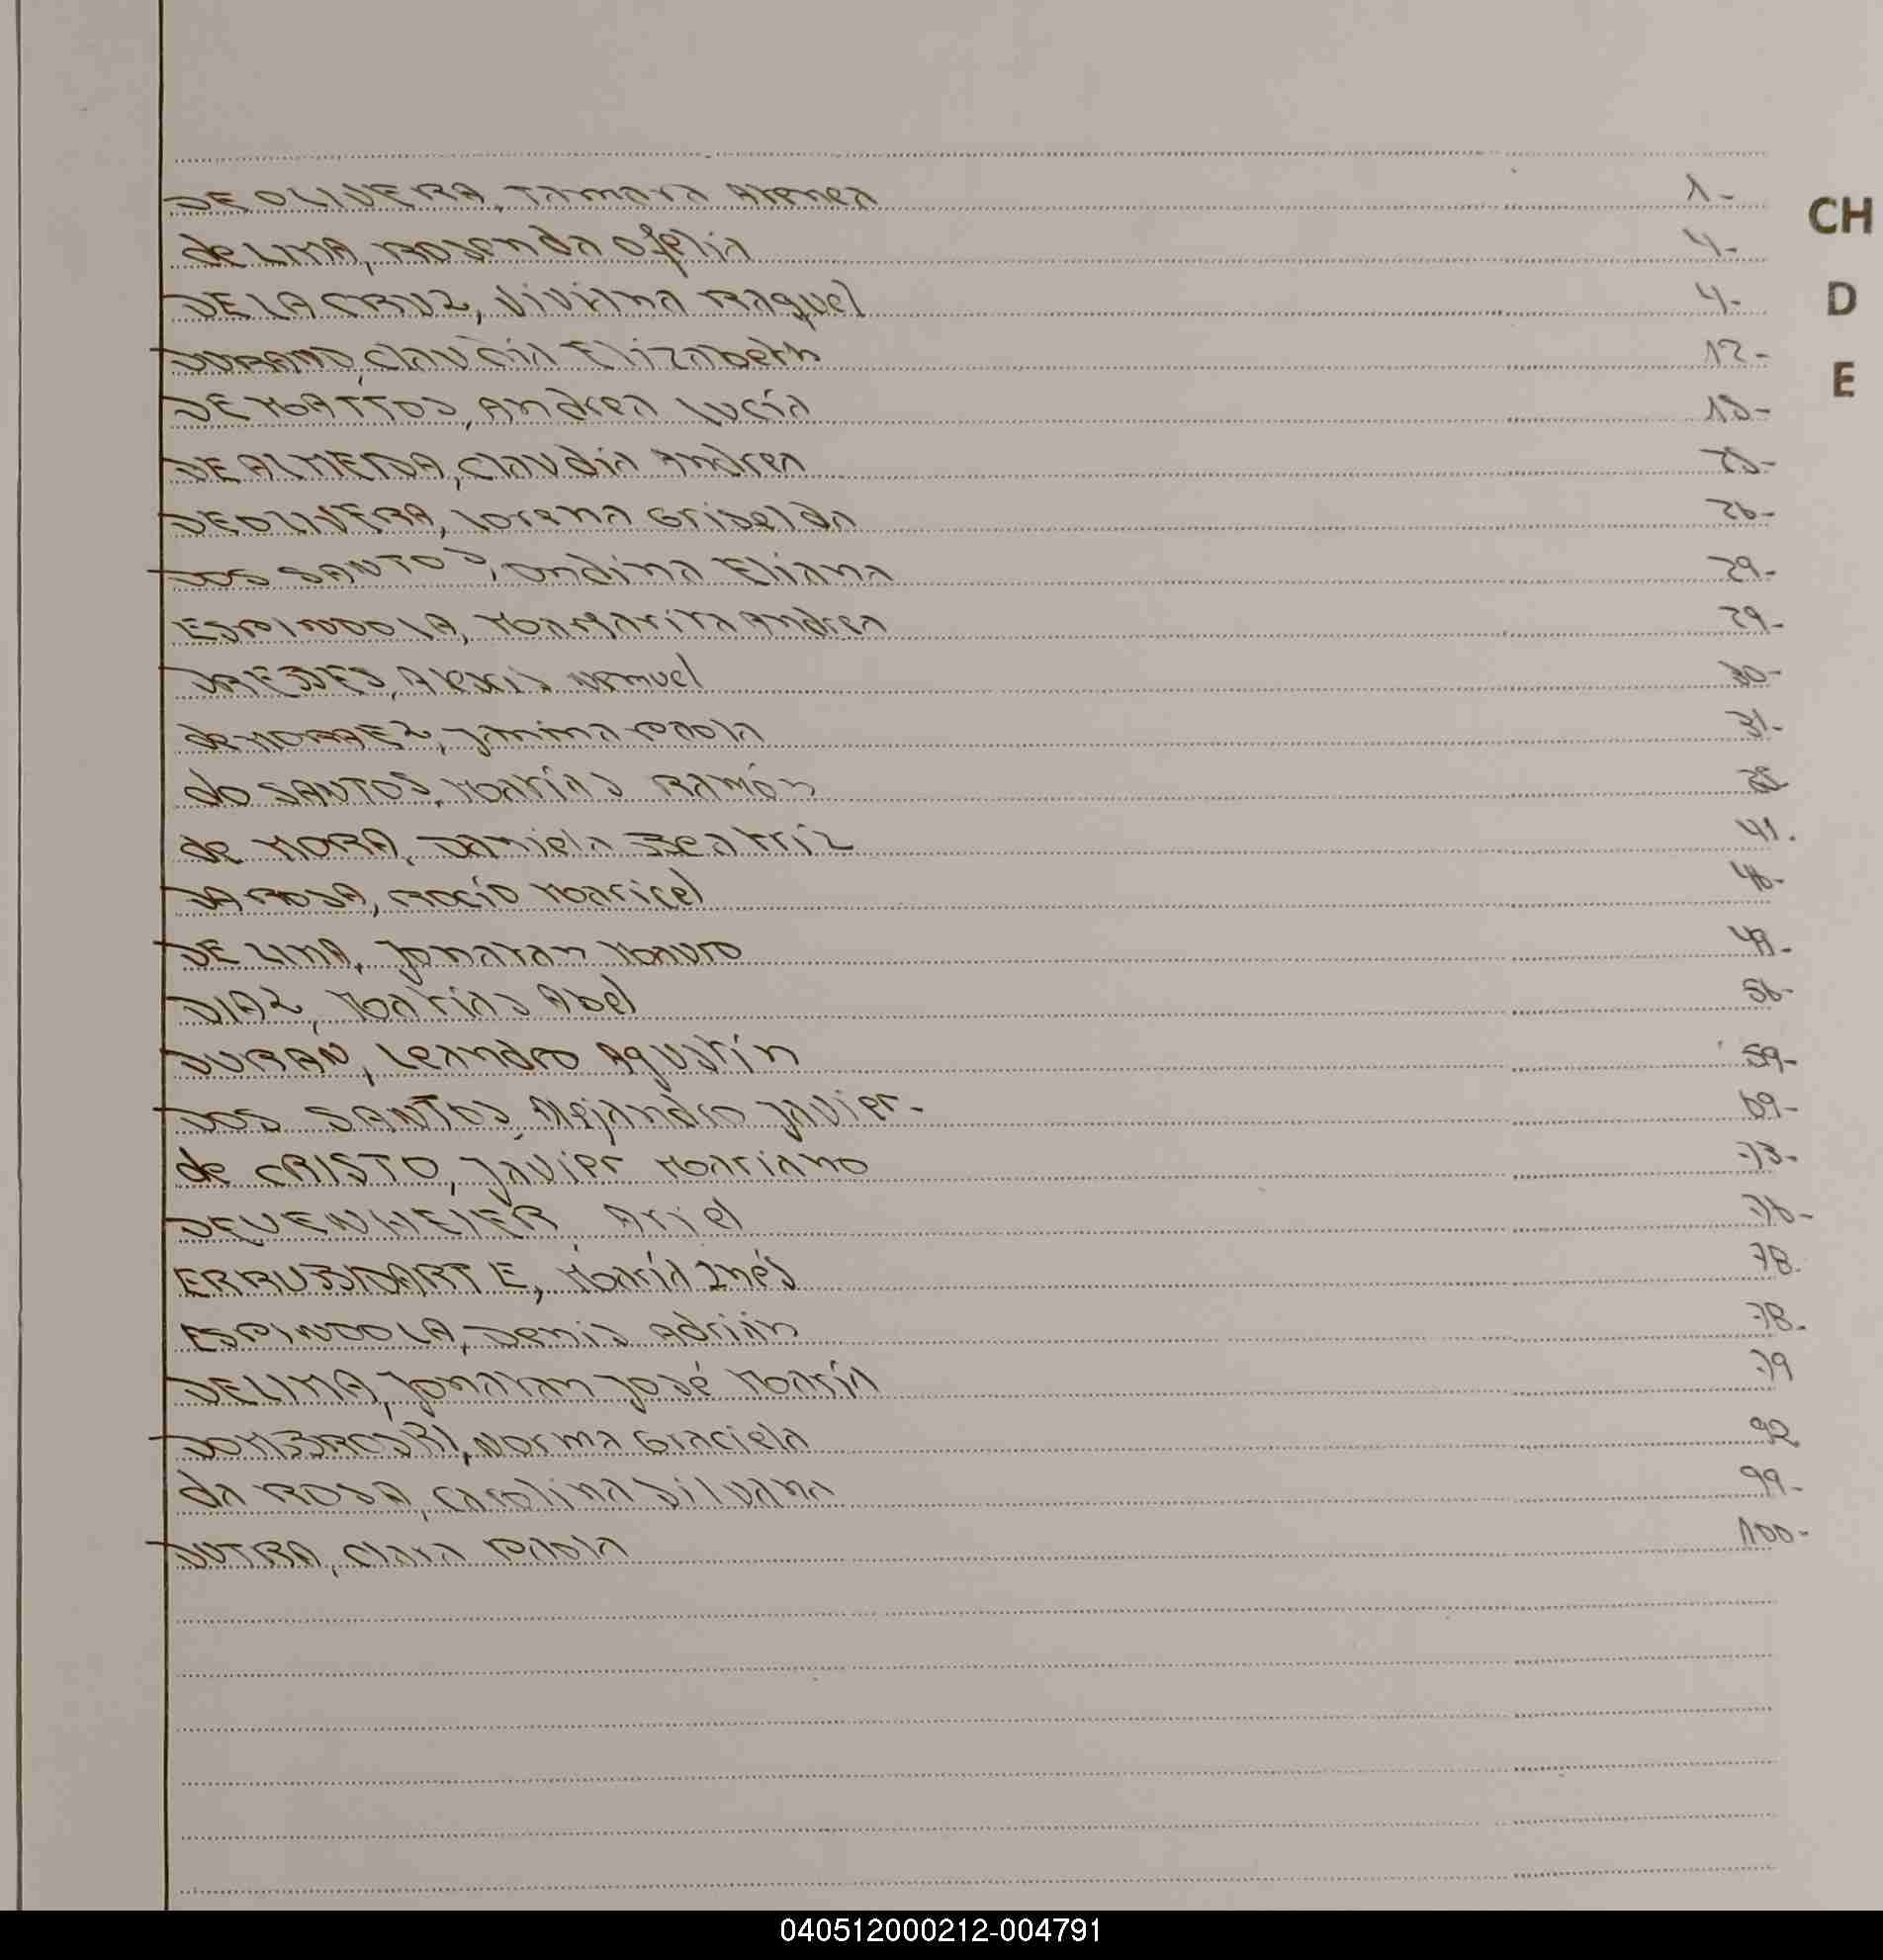 DE OLIVERA, Tamara Atenea 1-
de LIMA, Rosenda Ofelia 4-
DE LA CRUZ, Viviana Raquel 4-
DURAND, Claudia Elizabeth 12-
DE MATTOS, Andrea Lucía 15-
DE ALMEIDA, Claudia Andrea 25-
DE OLIVERA, Lorena Griselda 26-
DOS SANTOS, Ondina Eliana 29-
ESPINDOLA, Margarita Andrea 29-
Alexis Nemuel 30-
de MORAEZ, Janina Paola 31-
do SANTOS, Matías Ramón
de MORA, Daniela Beatriz 41.
DA ROSA, Rocío Maricel 46-
DE LIMA, Jonatan Mauro 49-
DIAZ, Matias Abel 56-
DURÁN, Leandro Agustín 59-
DOS SANTOS, Alejandro Javier- 69-
de CRISTO, Javier Mariano 73-
DEVENHEIER, Ariel 76-
ERRUBIDARTE, María Inés 78.
ESPINDOLA, Denis Adrián 78.
DE LIMA, Jonatan José María 79
DOMBROSKI, Norma Graciela 92
da ROSA, Carolina Silvana 99-
DUTRA, Clara Paola 100-
CH
D
E
040512000212-004791